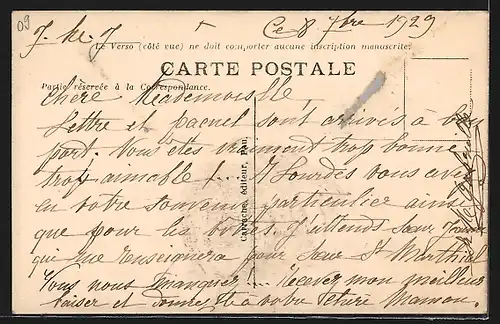 09
J. M. J.
Ce 8 7bre 1929
Le Verso (côté vue) ne doit comporter aucune inscription manuscrite.
CARTE POSTALE
Partie réservée à la Correspondance.
Chère Mademoiselle,
Lettre et paquet sont arrivés à bon
port. Vous êtes vraiment trop bonne
trop aimable ! ... A Lourdes vous avez
eu votre souvenir particulier ainsi
que pour les vôtres. J'attends Sœur
qui me renseignera pour Sœur St
Vous nous manquez ! ... Recevez mon meilleur
baiser et donnez à votre chère Maman.
Carrache, éditeur, Pau.